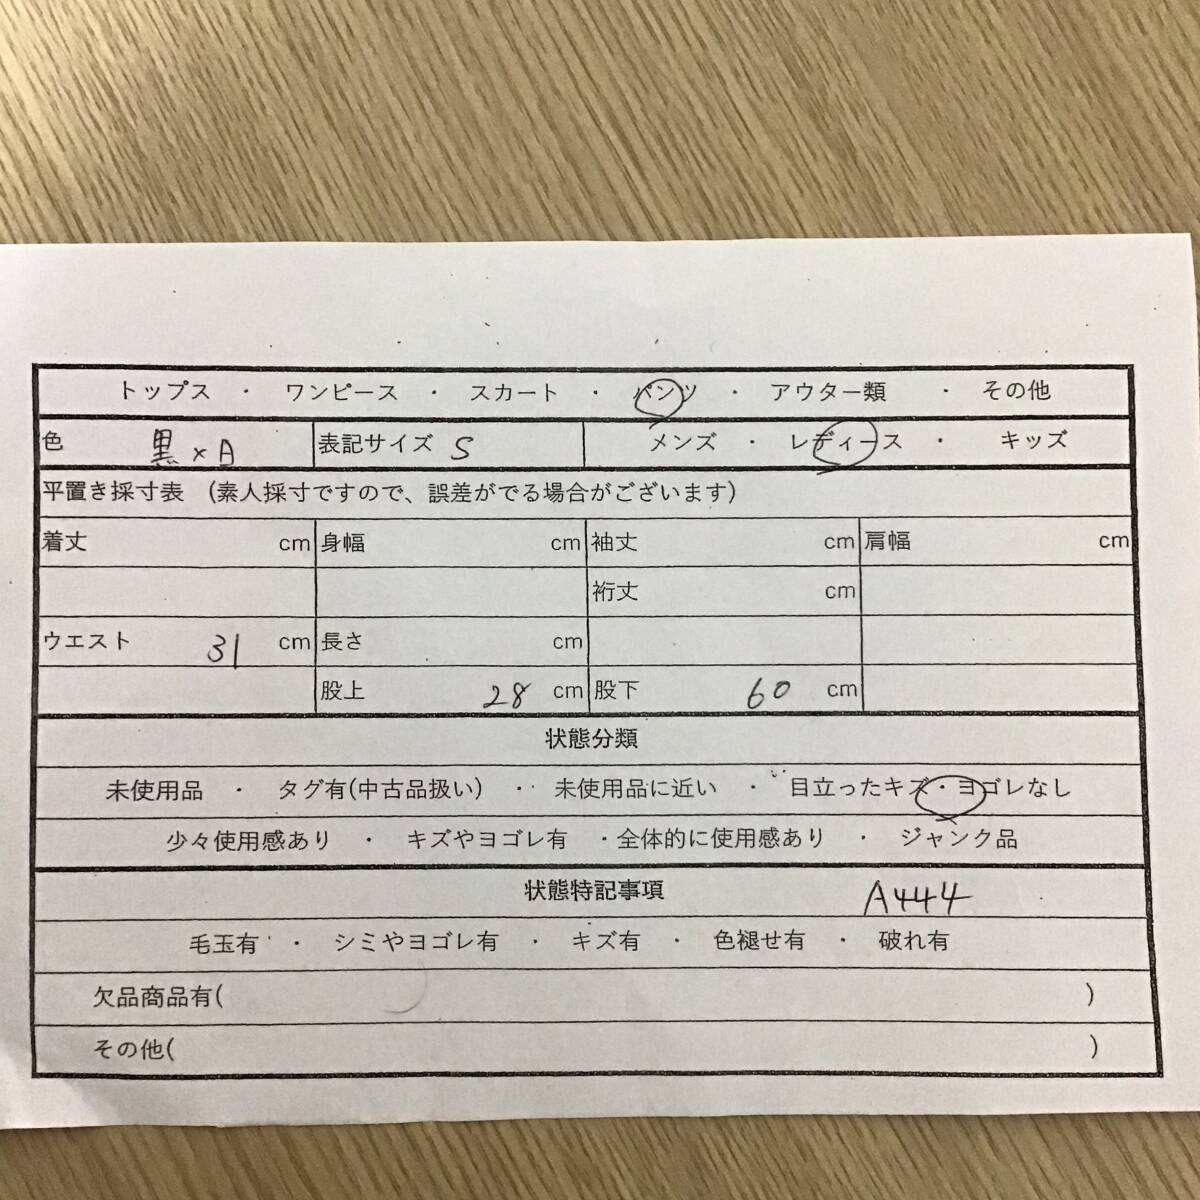 トップス ・ ワンピース ・ スカート ・ パンツ ・ アウター類 ・ その他
色 黒×A 表記サイズ S メンズ ・ レディース ・ キッズ
平置き採寸表 (素人採寸ですので、誤差がでる場合がございます)
着丈 cm 身幅 cm 袖丈 cm 肩幅 cm
裄丈 cm
ウエスト 31 cm 長さ cm
股上 28 cm 股下 60 cm
状態分類
未使用品 ・ タグ有(中古品扱い) ・ 未使用品に近い ・ 目立ったキズ・ヨゴレなし
少々使用感あり ・ キズやヨゴレ有 ・全体的に使用感あり ・ ジャンク品
状態特記事項 A444
毛玉有 ・ シミやヨゴレ有 ・ キズ有 ・ 色褪せ有 ・ 破れ有
欠品商品有( )
その他( )